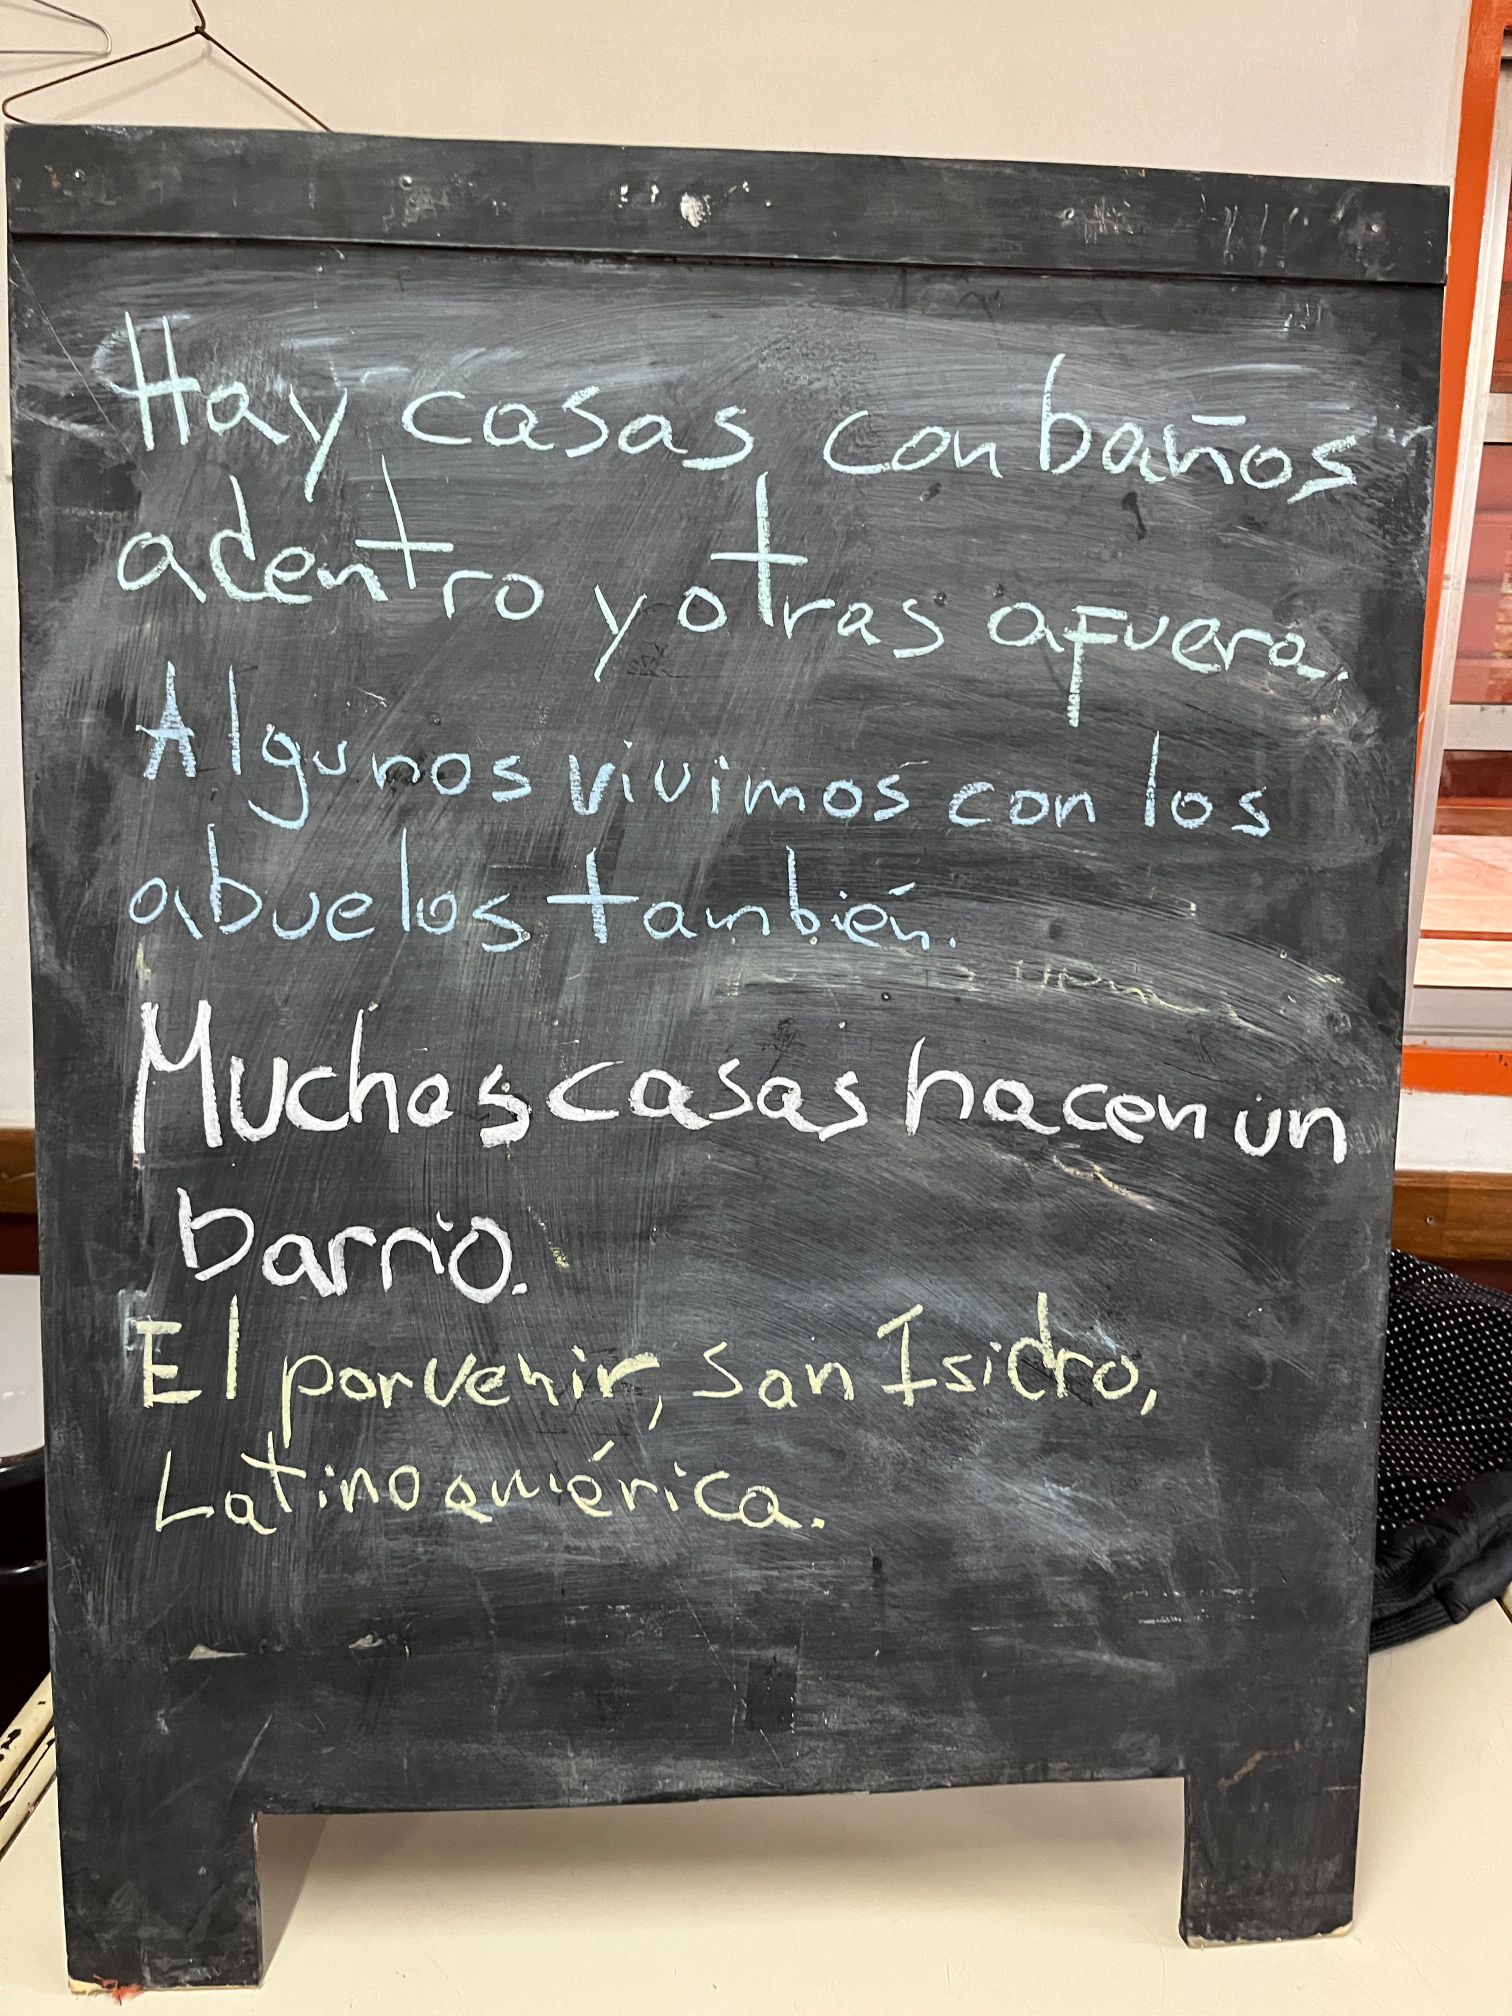 Hay casas con baños
adentro y otras afuera.
Algunos vivimos con los
abuelos también.
Muchas casas hacen un
barrio.
El porvenir, San Isidro,
Latinoamérica.